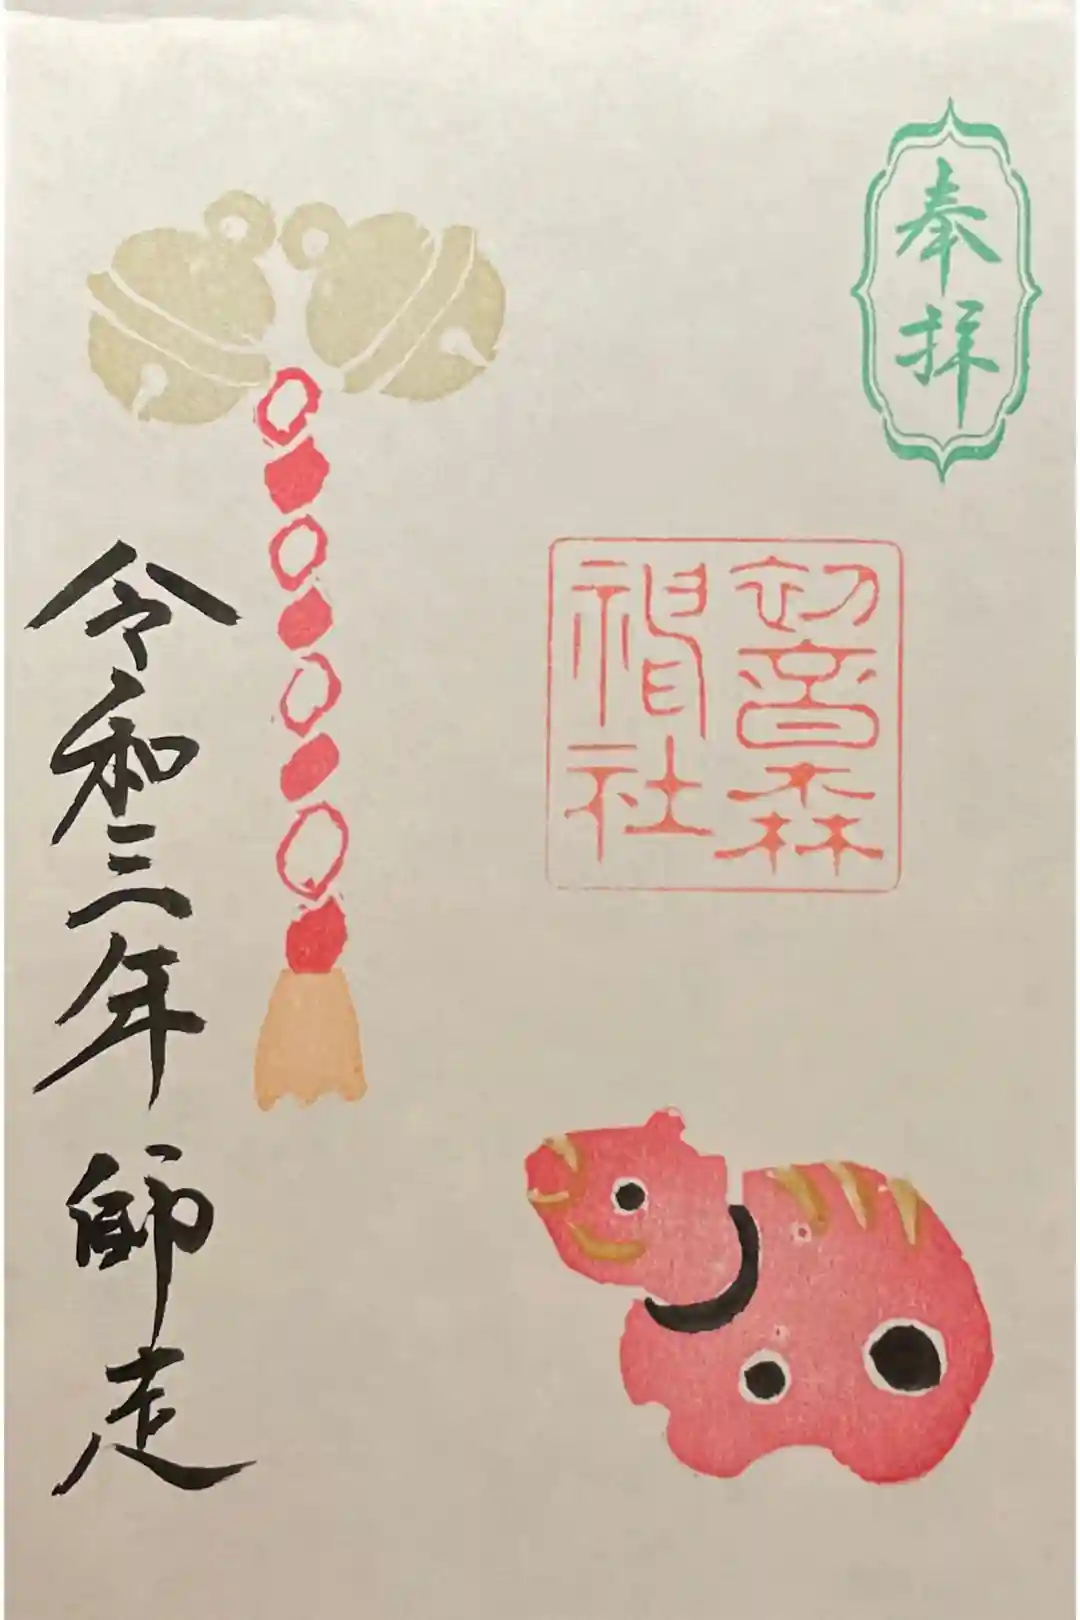 奉拝
初音森
神社
令和三年 師走